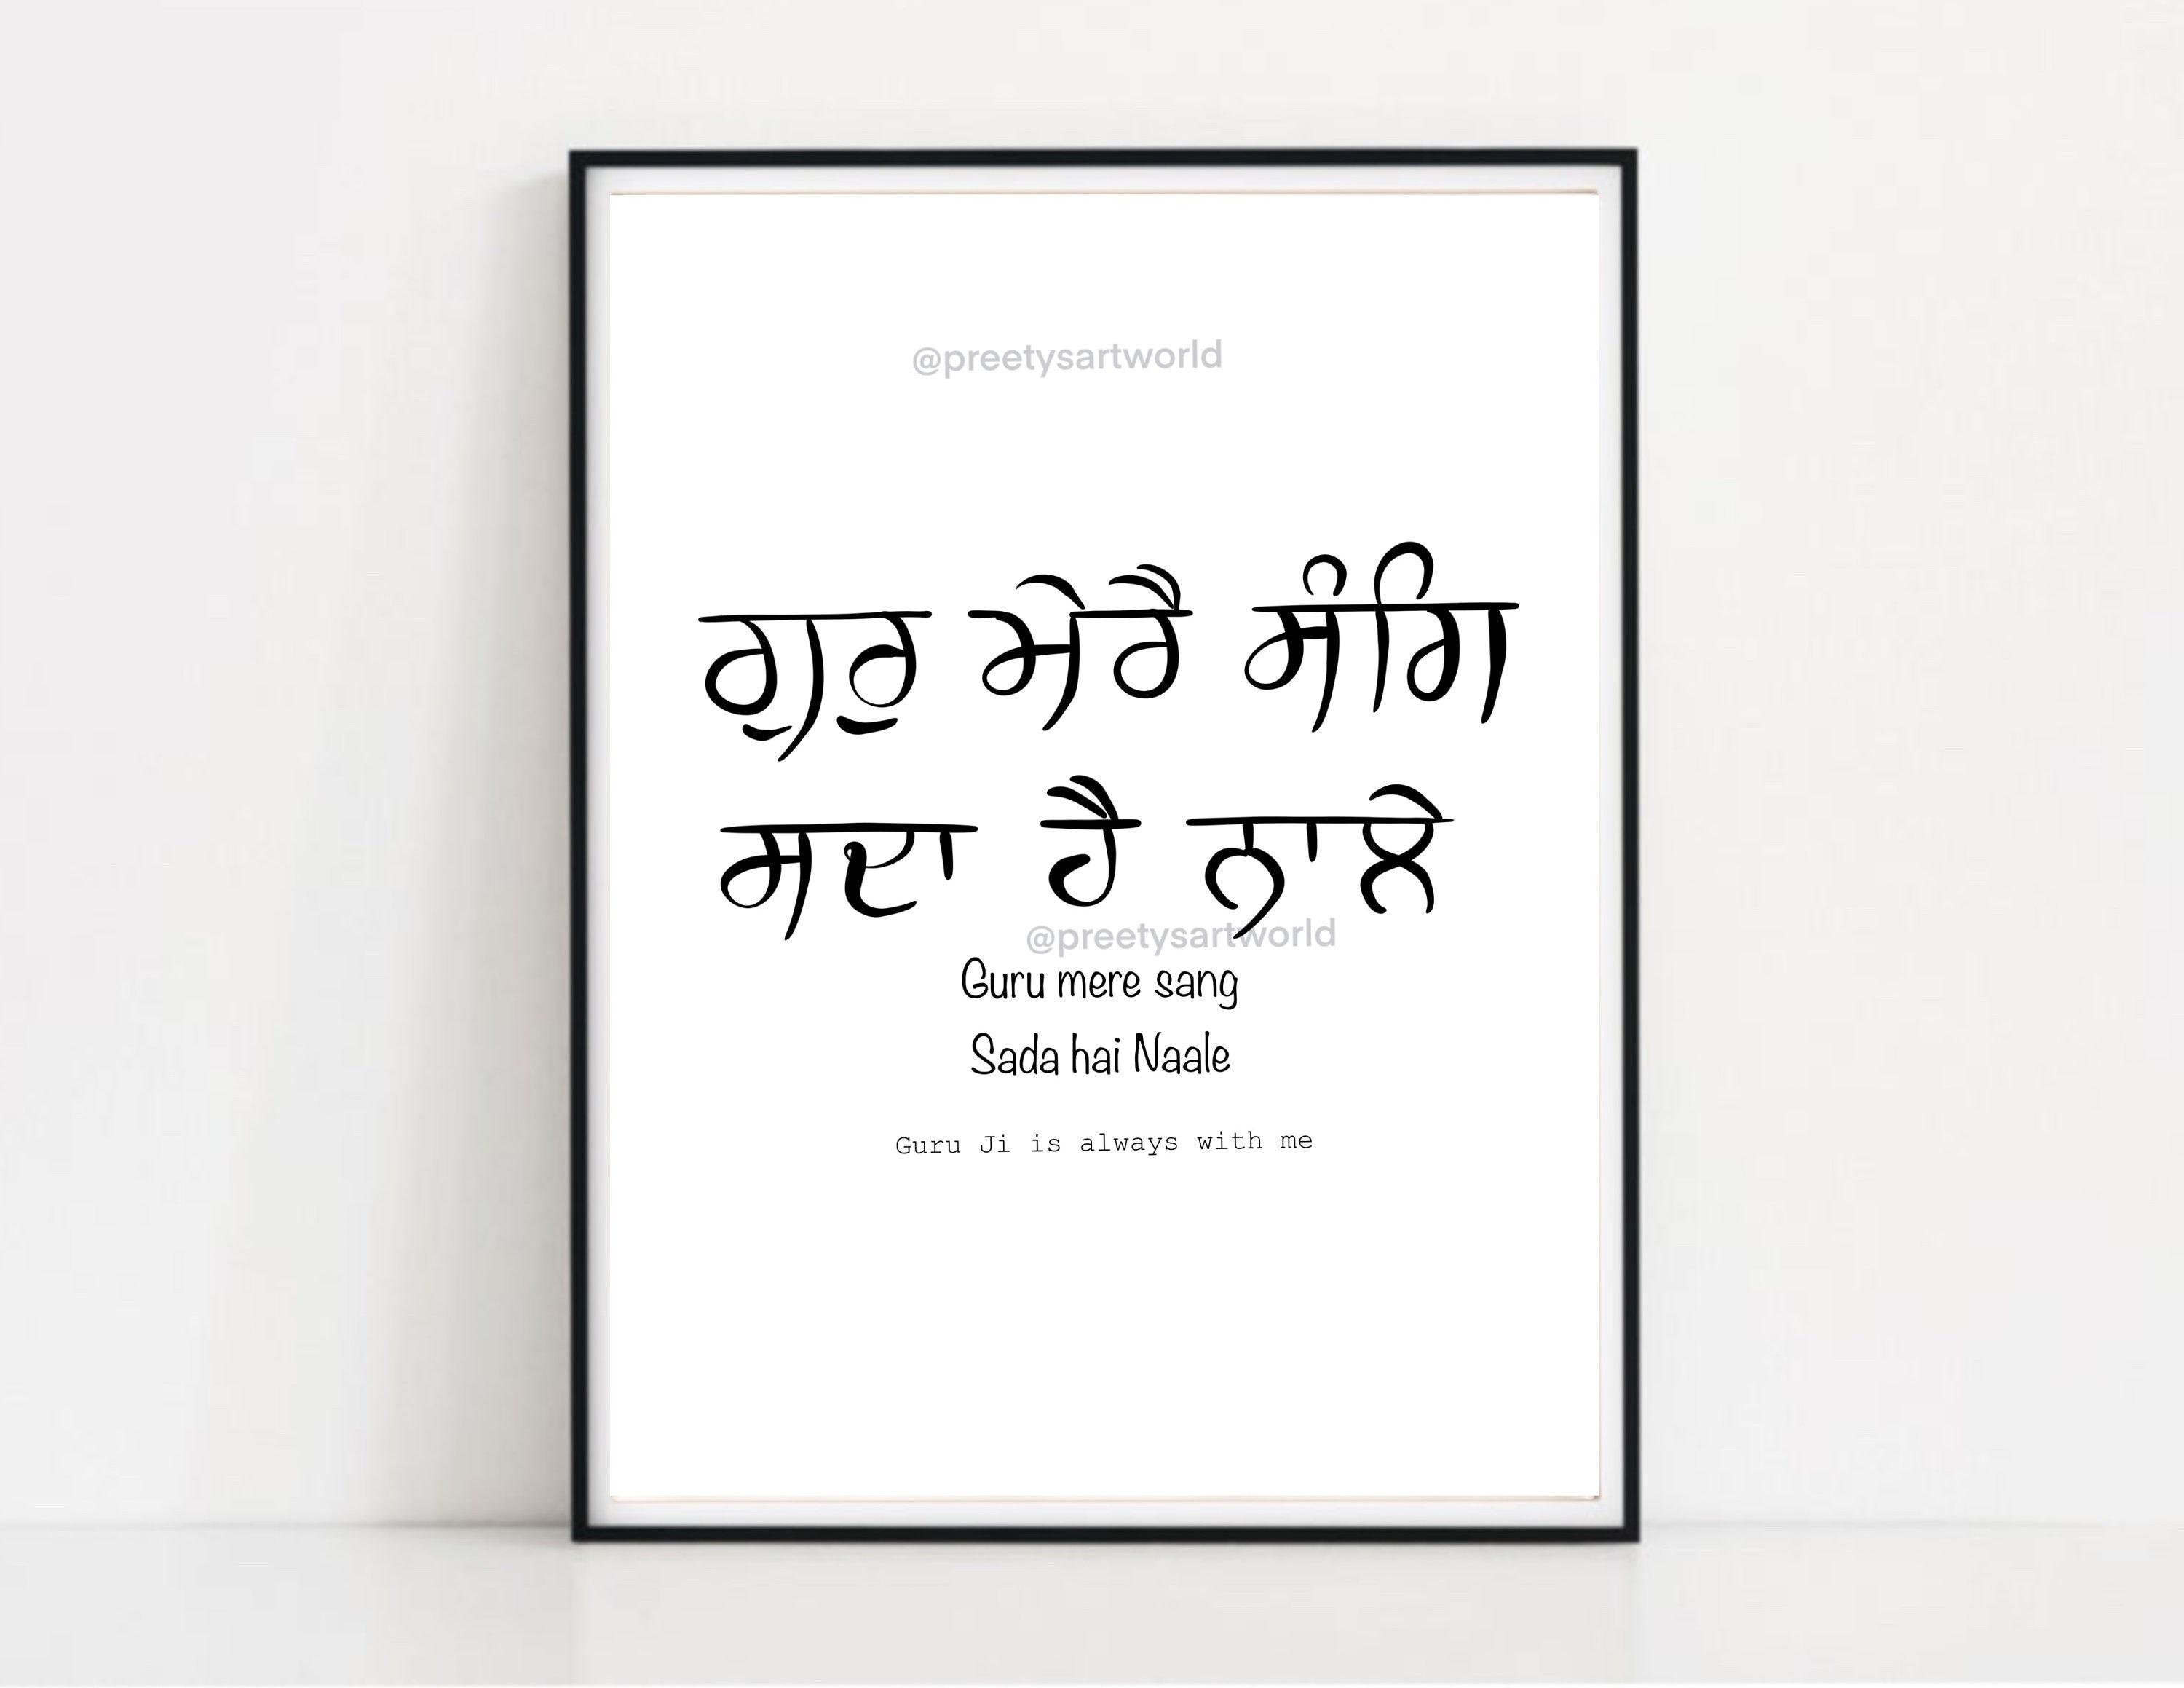 @preetysartworld
ਗੁਰੁ ਮੇਰੈ ਸੰਗਿ
ਸਦਾ ਹੈ ਨਾਲੇ
@preetysartworld
Guru mere sang
Sada hai Naale
Guru Ji is always with me